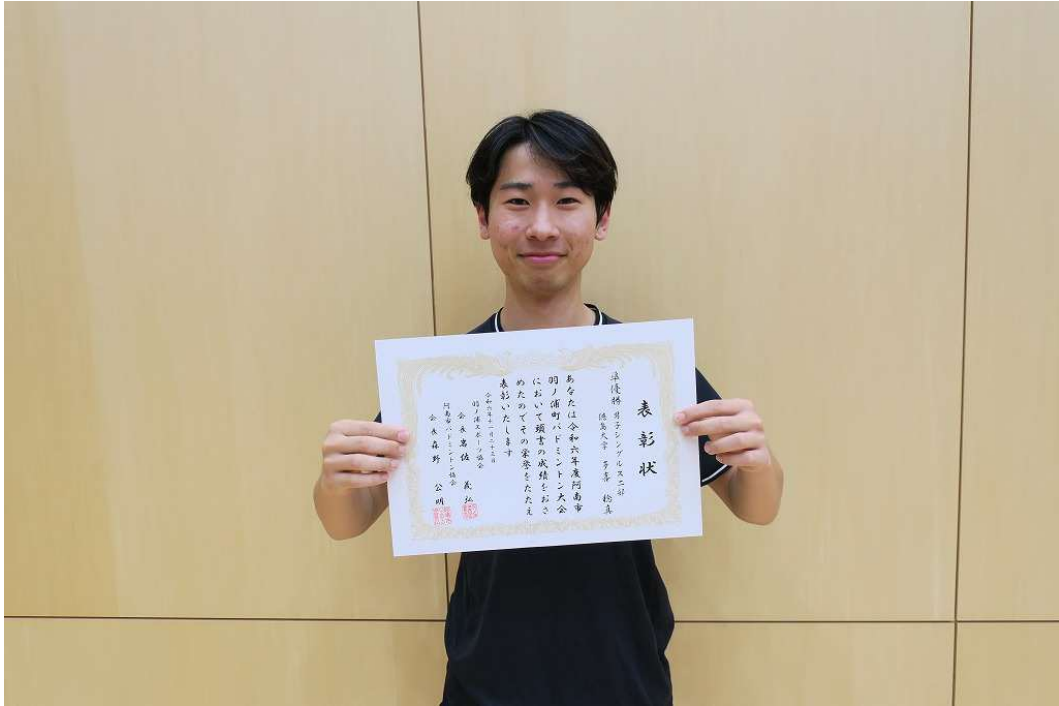 表彰状
準優勝 男子シングルス二部
徳島大学 多喜 稔真
あなたは令和六年度阿南市
羽ノ浦町バドミントン大会
において頭書の成績をおさ
めたのでその栄誉をたたえ
表彰いたします
令和六年十一月二十三日
羽ノ浦スポーツ協会
会長 義弘
阿南市バドミントン協会
会長 森野 公明